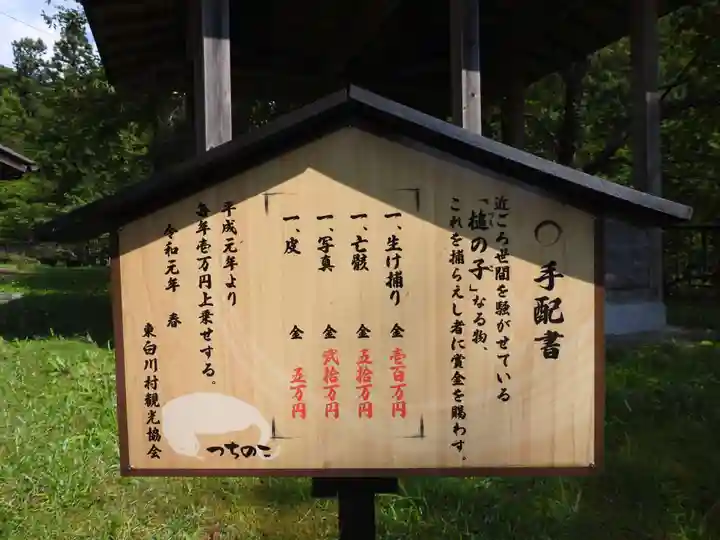 ○ 手配書
近ごろ世間を騒がせている
「槌の子」なる物、
これを捕らえし者に賞金を賜わす。
一、生け捕り 金 壱百万円
一、亡骸 金 五拾万円
一、写真 金 弐拾万円
一、皮 金 五万円
平成元年より
毎年壱万円上乗せする。
令和元年 春
東白川村観光協会
つちのこ